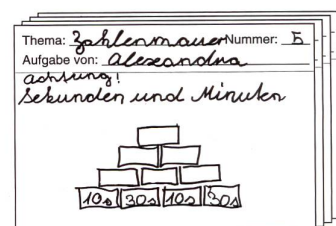 Thema: Zahlenmauer Nummer: 5
Aufgabe von: Alexandra
Achtung!
Sekunden und Minuten
10s 30s 10s 30s